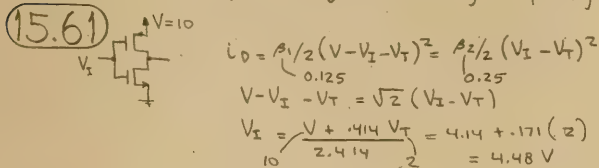 15.61
V=10
V_I
i_D = β1/2 (V-V_I-V_T)² = β2/2 (V_I-V_T)²
0.125 0.25
V-V_I-V_T = √2 (V_I-V_T)
V_I = (V + .414 V_T)/2.414 = 4.14 + .171(2)
10 2
= 4.48 V